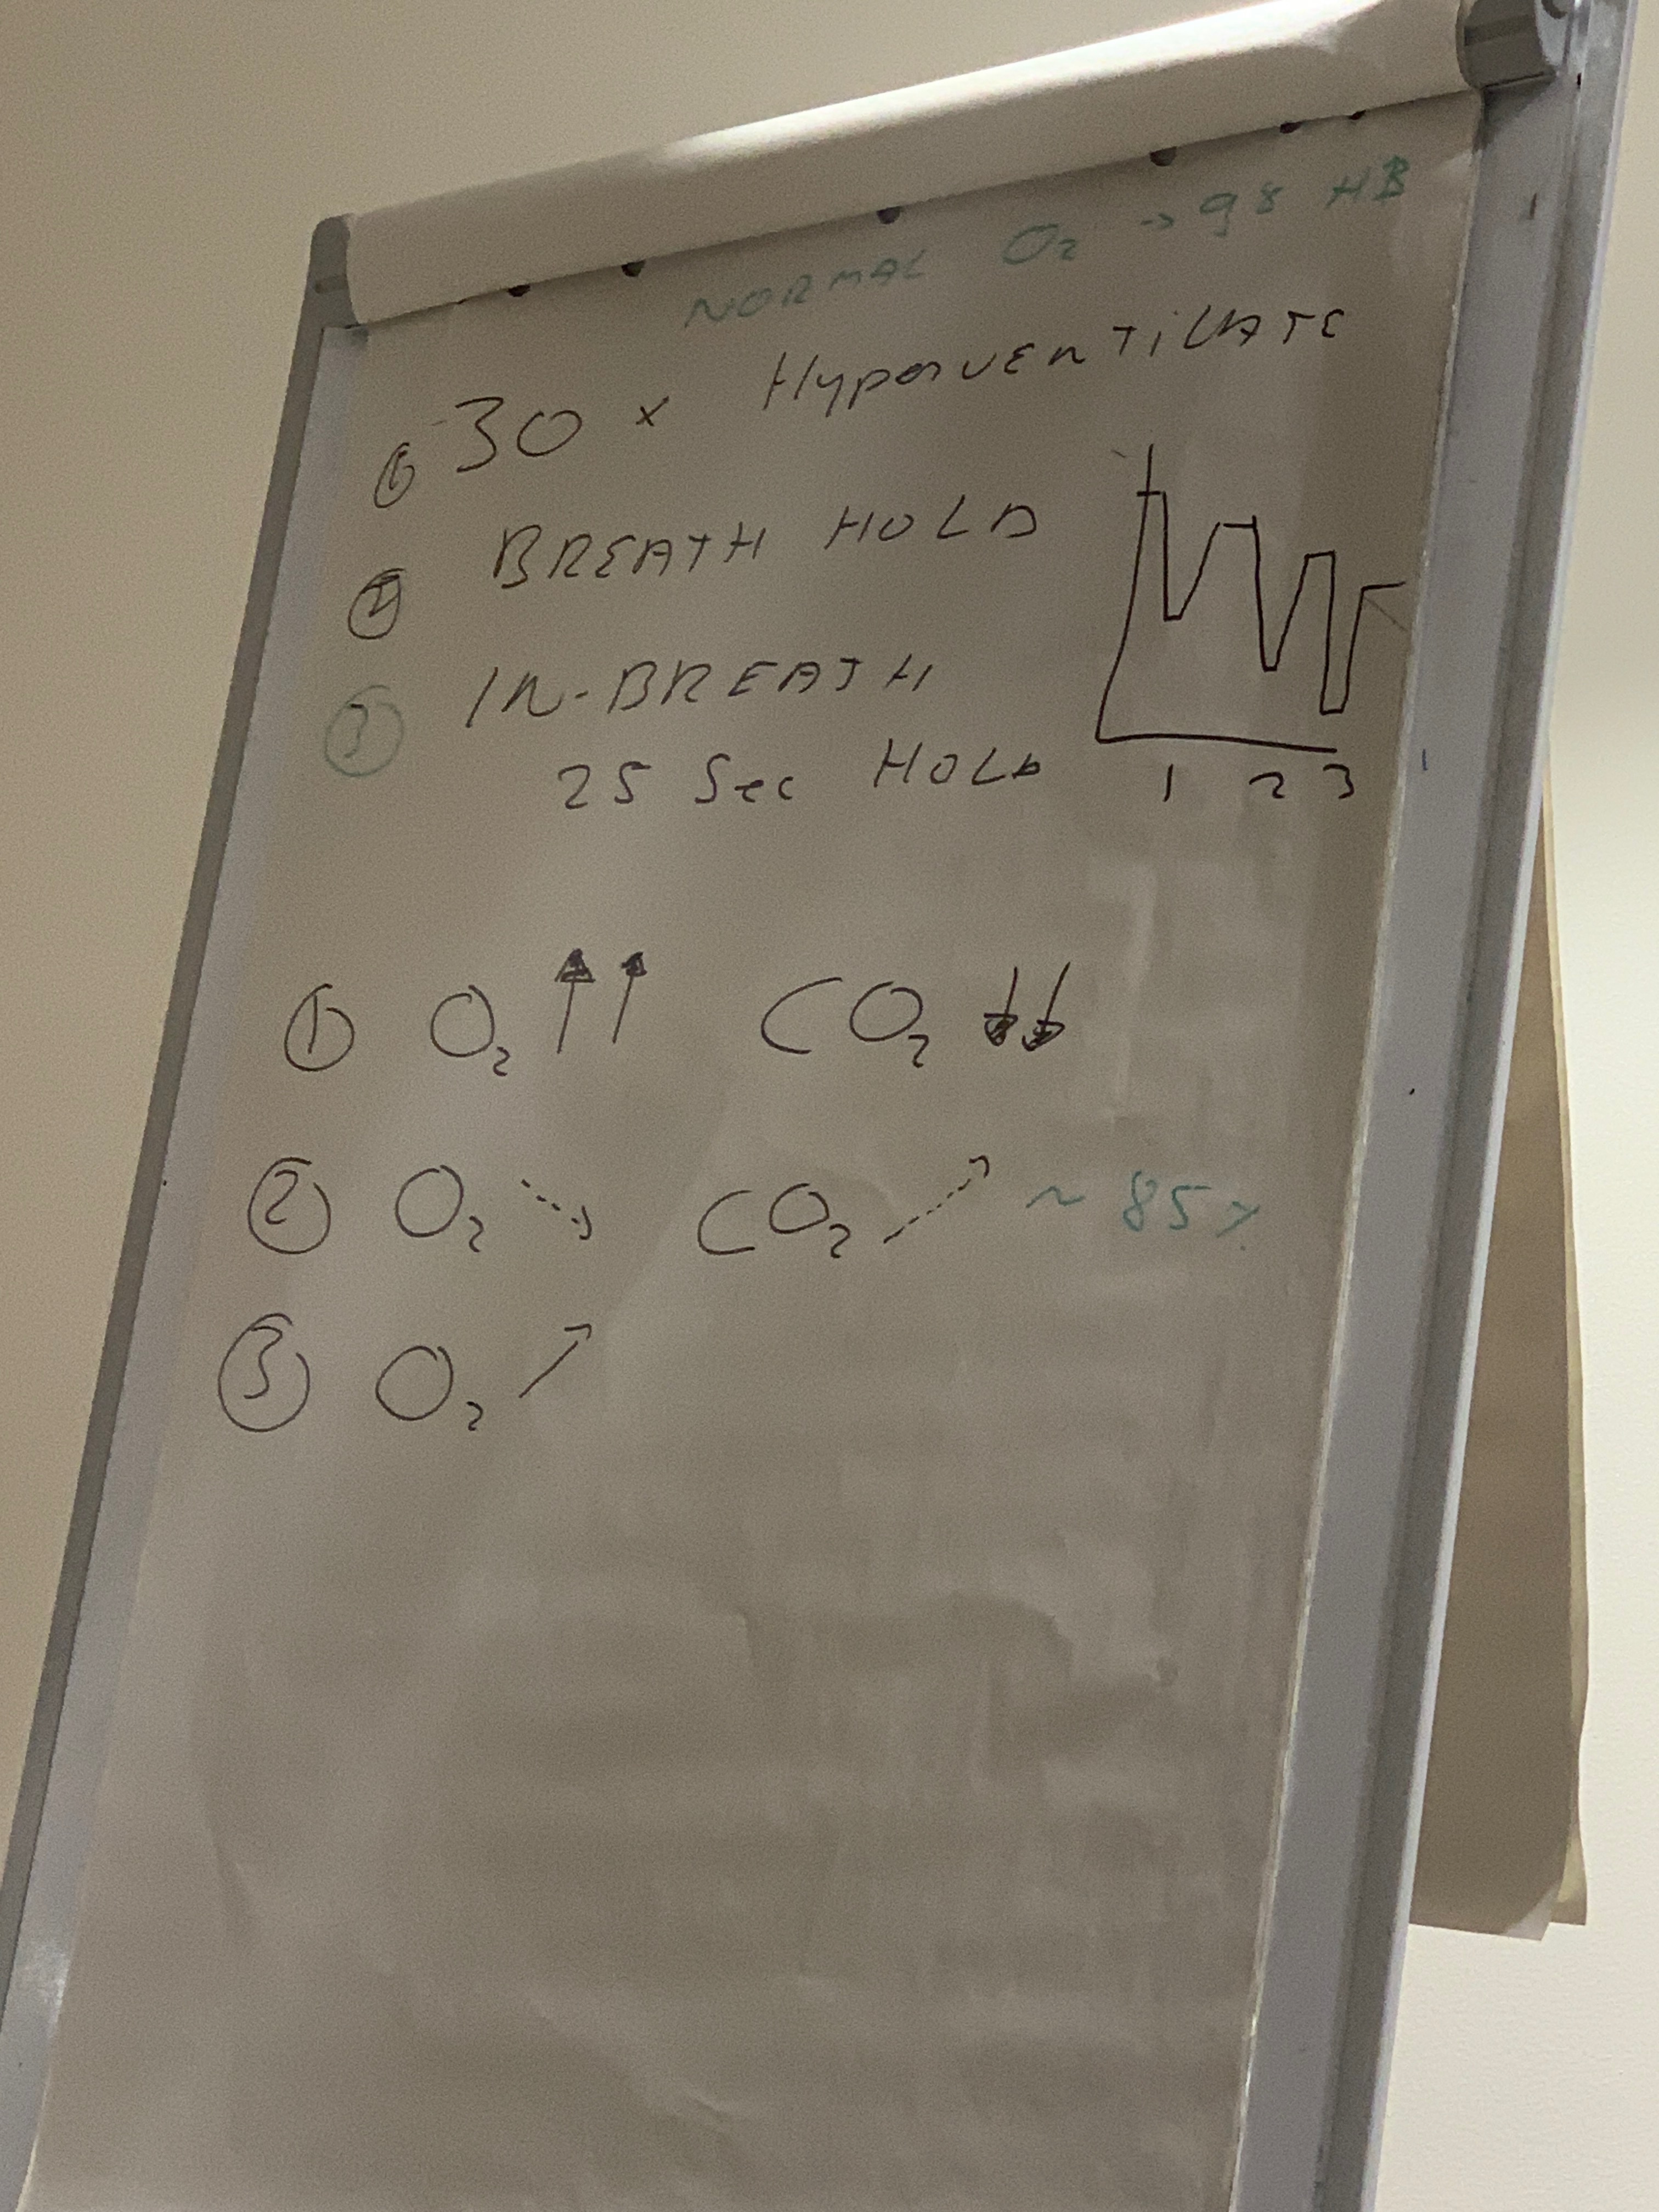 NORMAL O2 → 98 HB
① 30 x HyperVENTiLATE
② BREATH HOLD
③ IN-BREATH
25 Sec HOLD
1 2 3
① O2 ↑↑ CO2 ↓↓
② O2 ↘ CO2 ↗ ~ 85%
③ O2 ↗